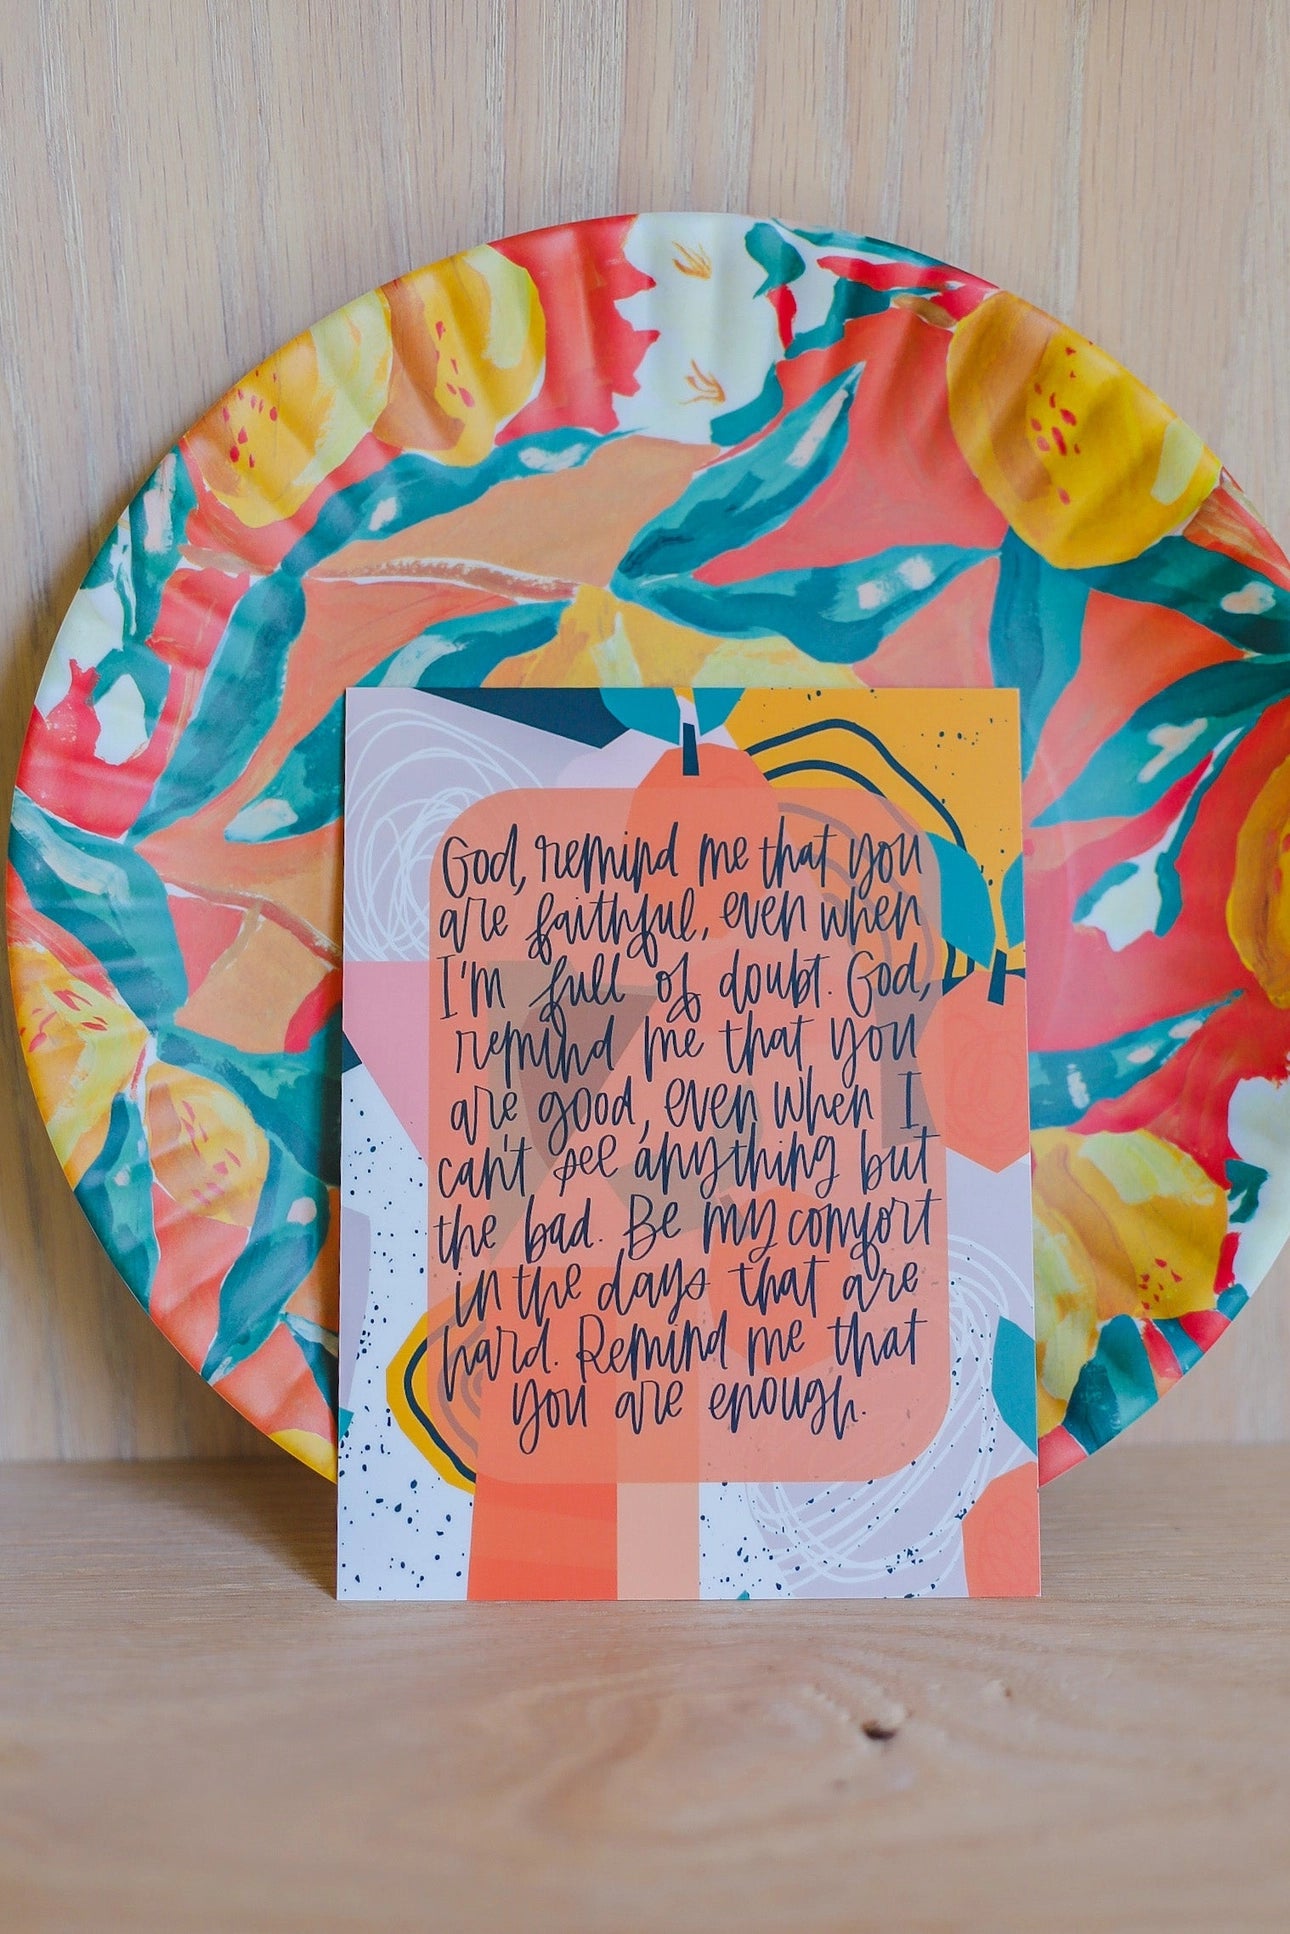 God, remind me that you
are faithful, even when
I'm full of doubt. God,
remind me that you
are good, even when I
can't see anything but
the bad. Be my comfort
in the days that are
hard. Remind me that
you are enough.